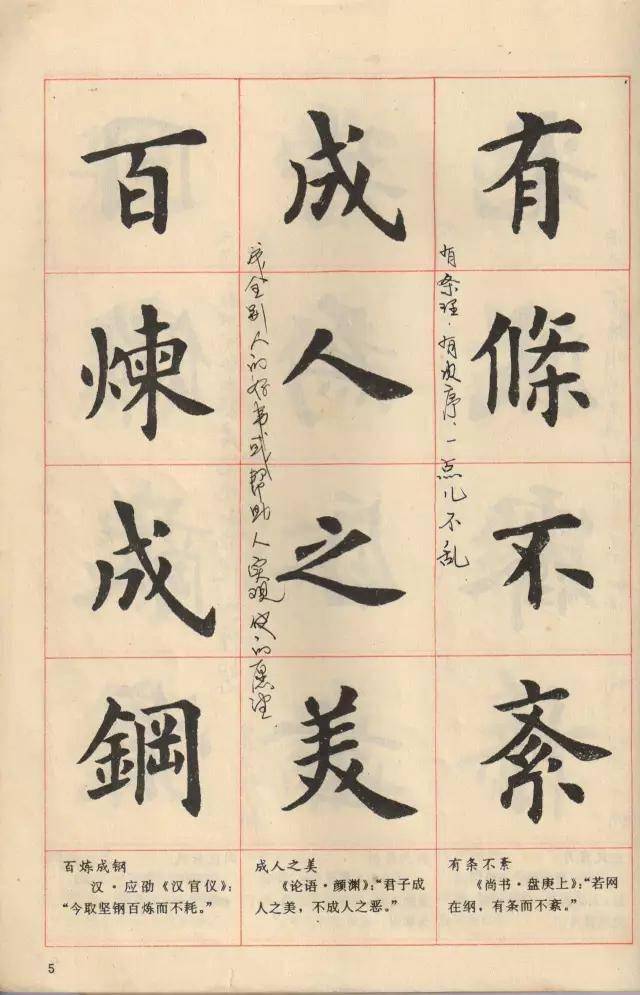 有條不紊
有条理，有次序，一点儿不乱
成人之美
成全别人的好事或帮助人实现他的愿望．
百煉成鋼
有条不紊
《尚书·盘庚上》：“若网
在纲，有条而不紊。”
成人之美
《论语·颜渊》：“君子成
人之美，不成人之恶。”
百炼成钢
汉·应劭《汉官仪》：
“今取坚钢百炼而不耗。”
5